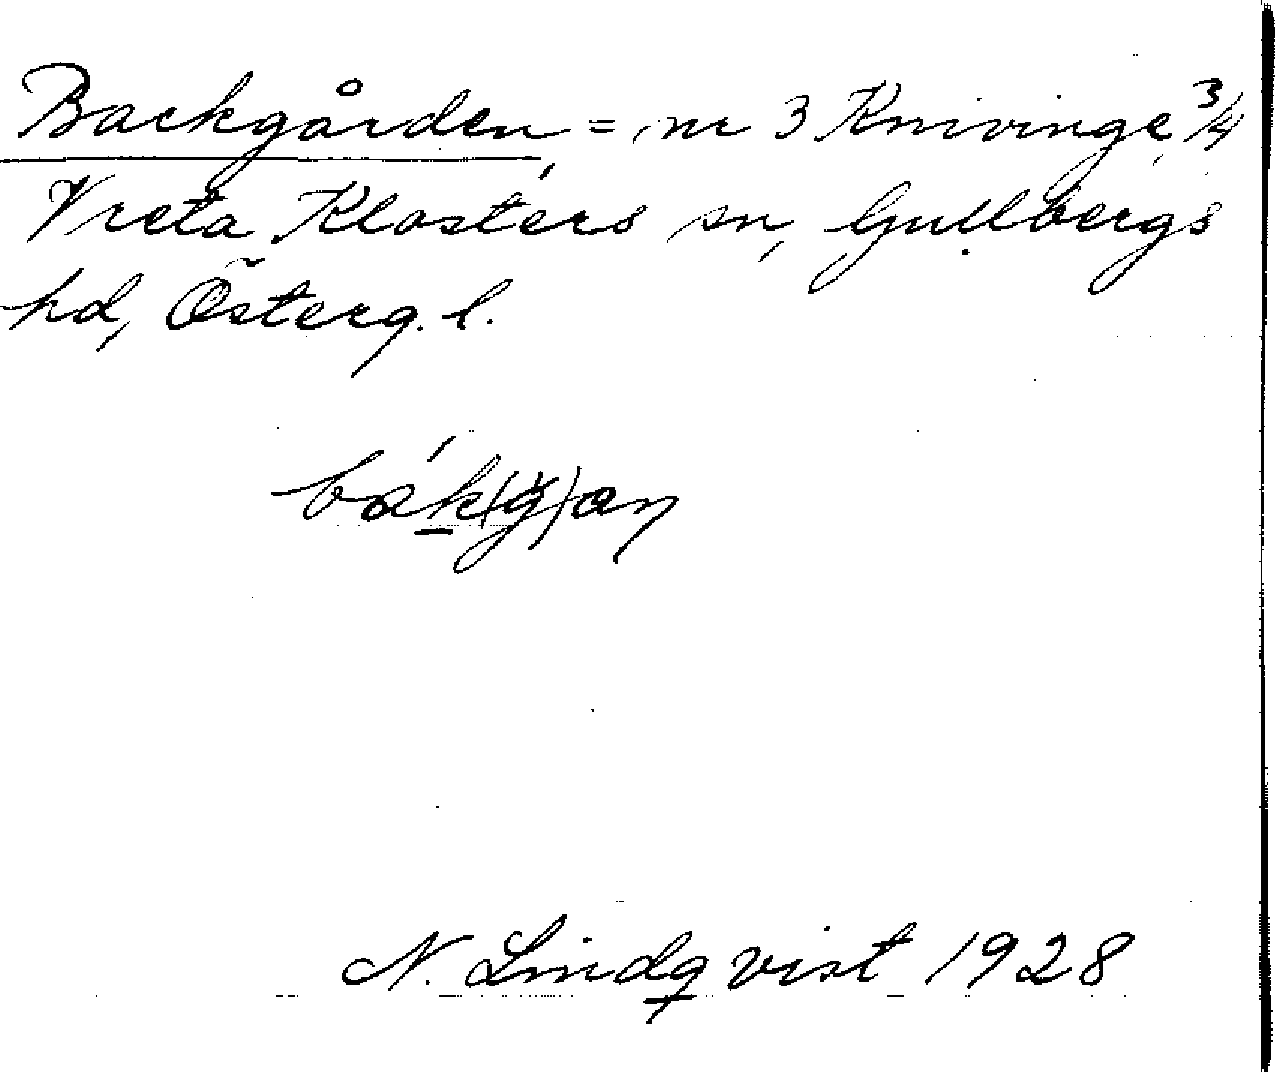 Backgården = nr 3 Knivinge 3/4
Vreta Klosters sn, Gullbergs
hd, Österg. l.
N. Lindqvist 1928